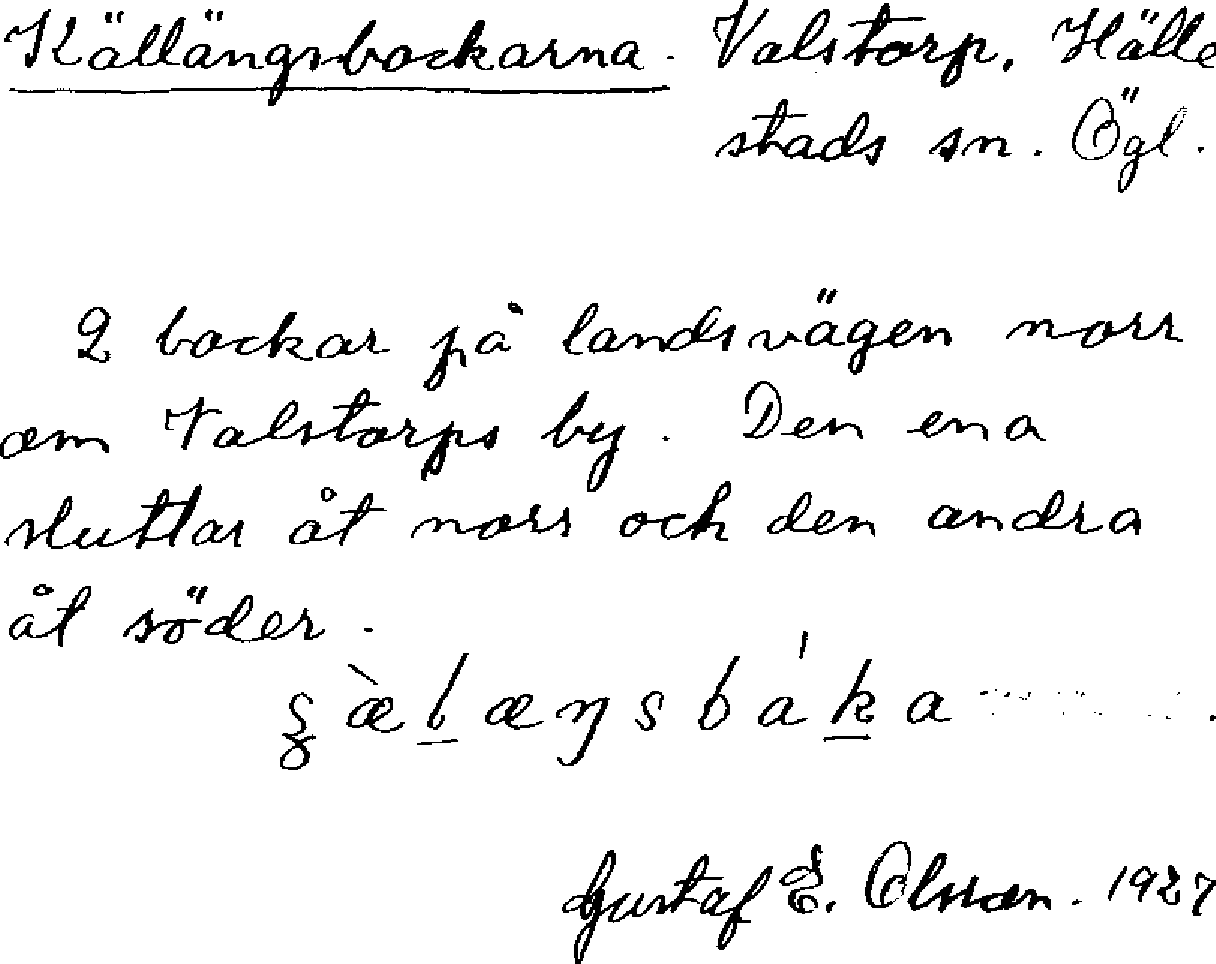 Källängsbackarna. Valstorp, Hälle
stads sn. Ögl.
2 backar på landsvägen norr
om Valstorps by. Den ena
sluttar åt norr och den andra
åt söder.
Gustaf E. Olsson. 1927